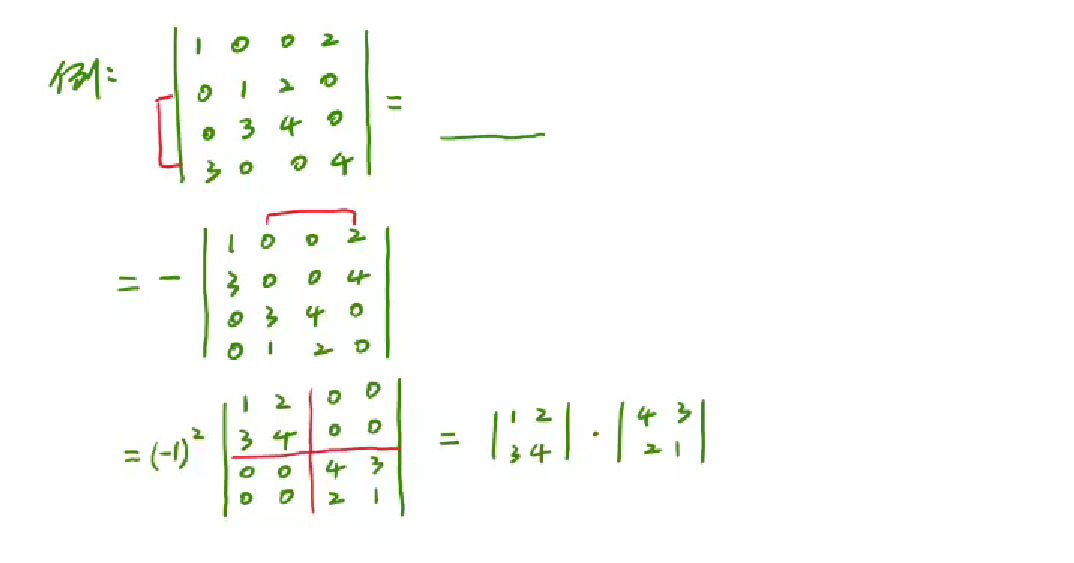 例: | 1 0 0 2 |
| 0 1 2 0 |
| 0 3 4 0 |
| 3 0 0 4 | = ______
= - | 1 0 0 2 |
| 3 0 0 4 |
| 0 3 4 0 |
| 0 1 2 0 |
= (-1)² | 1 2 0 0 |
| 3 4 0 0 |
| 0 0 4 3 |
| 0 0 2 1 |
= | 1 2 | · | 4 3 |
| 3 4 | | 2 1 |